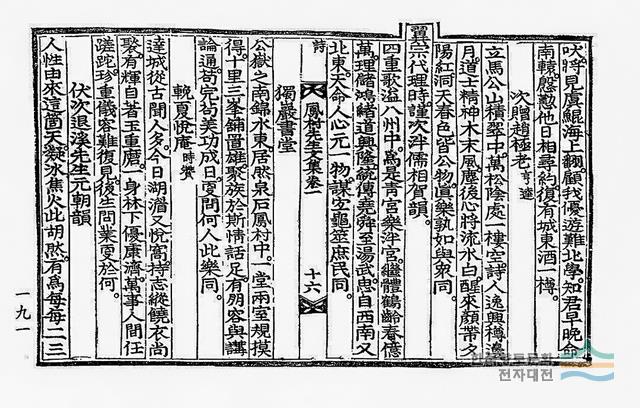 吠將見虞鯤海上翻顧我優遊難北學知君早晚命
南轅慇懃他日相尋約復有城東酒一樽。
次贈趙極老亨逵
立馬公山積翠中萬松陰處一樓空詩人逸興樽邊
月道士精神木末風塵後心將流水白醒來顏帶夕
陽紅洞天春色皆公物道樂孰如與衆同。
翼宗代理時謹次泮儒相賀韻。
四重歌溢八州中爲是靑宮樂泮宮繼體鶴齡春億
萬理儲鴻緖道興隆統傳堯舜至湯武忠自西南又
北東天命人心元一物謀交龜筮庶民同。
詩 鳳村先生文集卷一 十六
獨巖書堂
公嶽之南錦水東居然泉石鳳村中一堂兩室規摸
得十里三峯舖置雄聚族於斯情話足有朋容與講
論通苟完苟美功成日更問何人此樂同。
輓夏悅庵時贊
達城從古聞人多今日湖潛又悅窩持志縱饒衣尙
褧有輝自著玉重磨一身林下優康濟萬事人間任
蹉跎珍重儀容難復見後生問業更於何。
伏次退溪先生元朝韻
人性由來這箇天凝氷焦火此胡然有爲每每二三
一九一
향토문화
전자대전